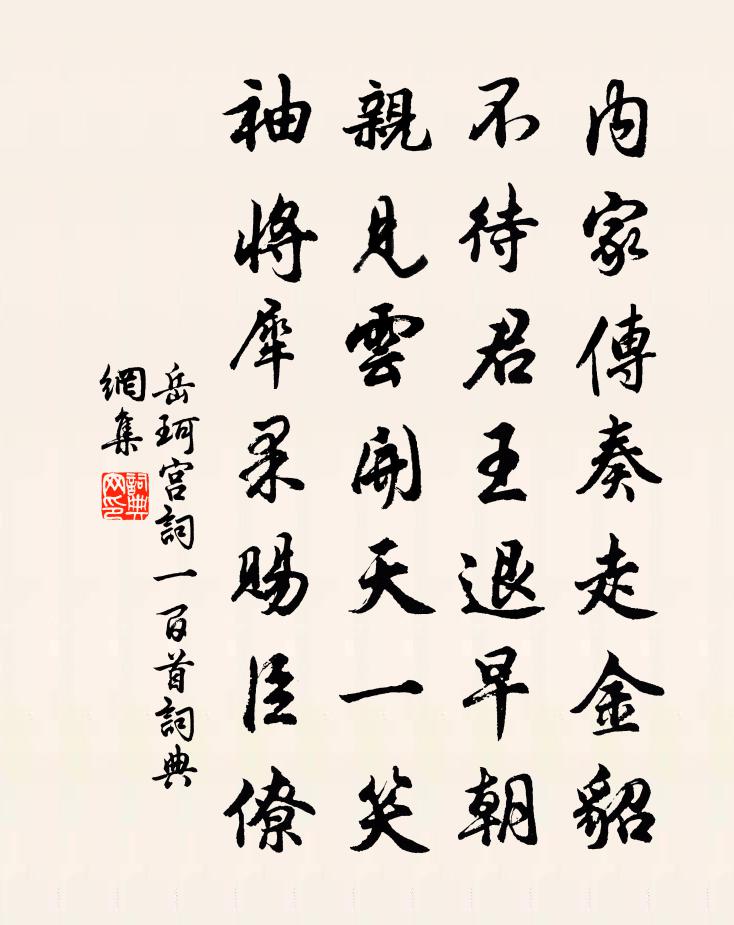 內家傳奏走金貂
不待君王退早朝
親見雲開天一笑
袖將犀果賜臣僚
岳珂宮詞一百首詞典
網集
詞典
网印